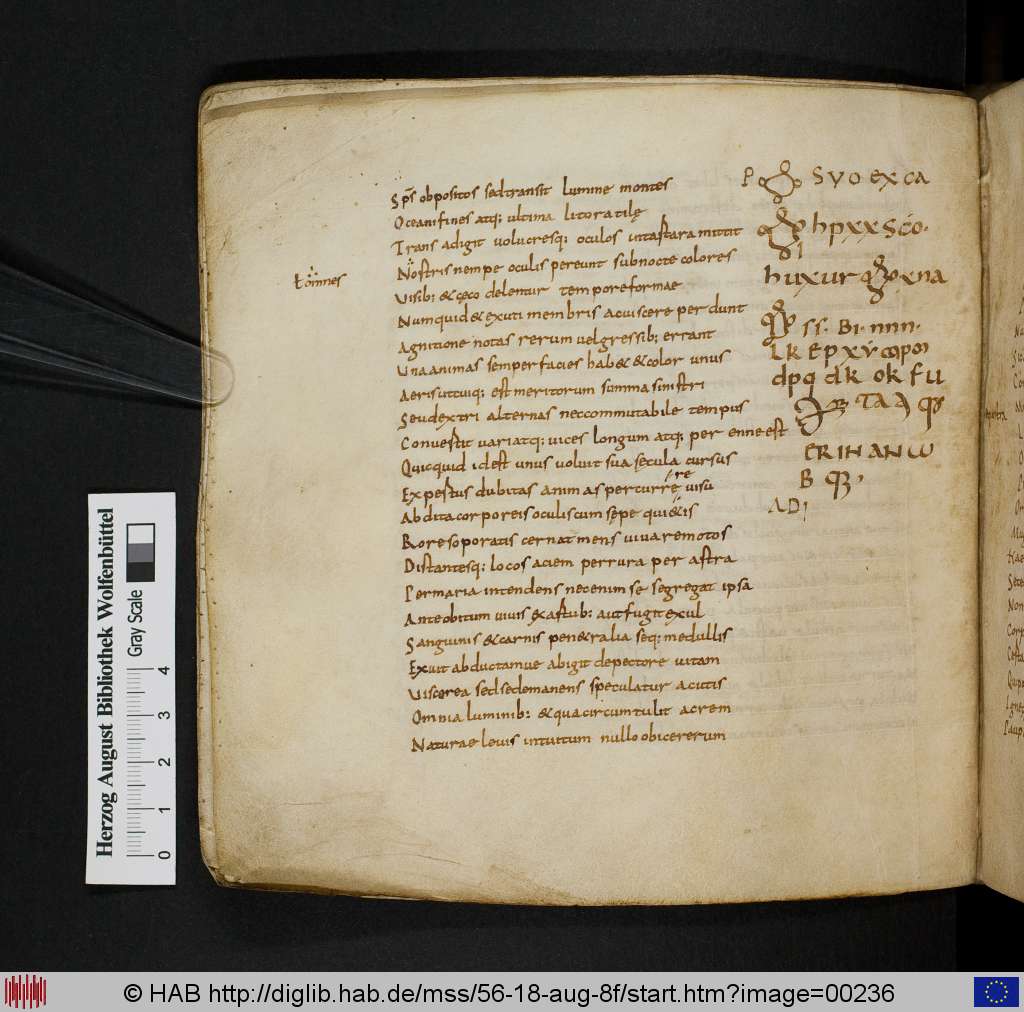 Sp̄s obpositos sedtransit lumine montes
Oceanifines atq; ultima litoratilę
Trans adigit volucresq; oculos intastaramittit
Nostris nempe oculis pereunt subnocte colores
ł omnes
Visib; & cęco delentur temporeformae
Numquid & exuti membris acviscere perdunt
Agnitione notas rerum velgressib; errant
Una animas semper facies hab& & color unus
Aerisutcuiq; est meritorum summa sinistri
Seudextri alternas neccommutabile tempus
Convestit variatq; vices longum atq; per enne est
Quicquid id est unus voluit sua sęcula cursus
re
Expestus dubitas animas percurrę visu
Abdita corporeis oculis cum sępe qui&is
Rore soporatis cernat mens viva remotos
Distantesq; locos aciem perrura per astra
Permaria intendens necenim se segregat ipsa
Ante obitum vivis exastub: aut fugit exul
Sanguinis & carnis pen&ralia seq; medullis
Exuit abductamve abigit depectore vitam
Viscerea sedsedemanens speculatur acutis
Omnia luminib: & qua circumtulit acrem
Naturae levis intuitum nullo obice rerum
P SVO EX CA
hpxxSco.
huxur oxna
ss. BI. nnn.
dpq dk ok fu
TA
ERIHANW
B
ADI
Herzog August Bibliothek Wolfenbüttel
Gray Scale
0 1 2 3 4
© HAB http://diglib.hab.de/mss/56-18-aug-8f/start.htm?image=00236